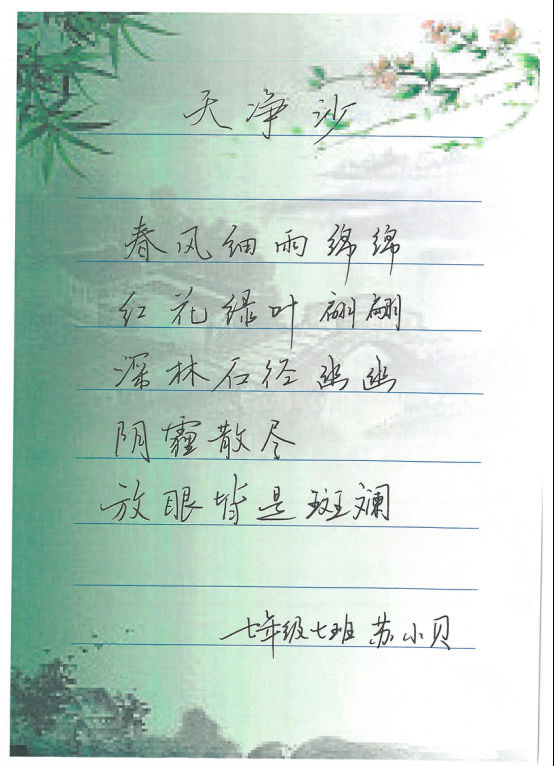 天净沙
春风细雨绵绵
红花绿叶翩翩
深林石径幽幽
阴霾散尽
放眼皆是斑斓
七年级七班 苏小贝